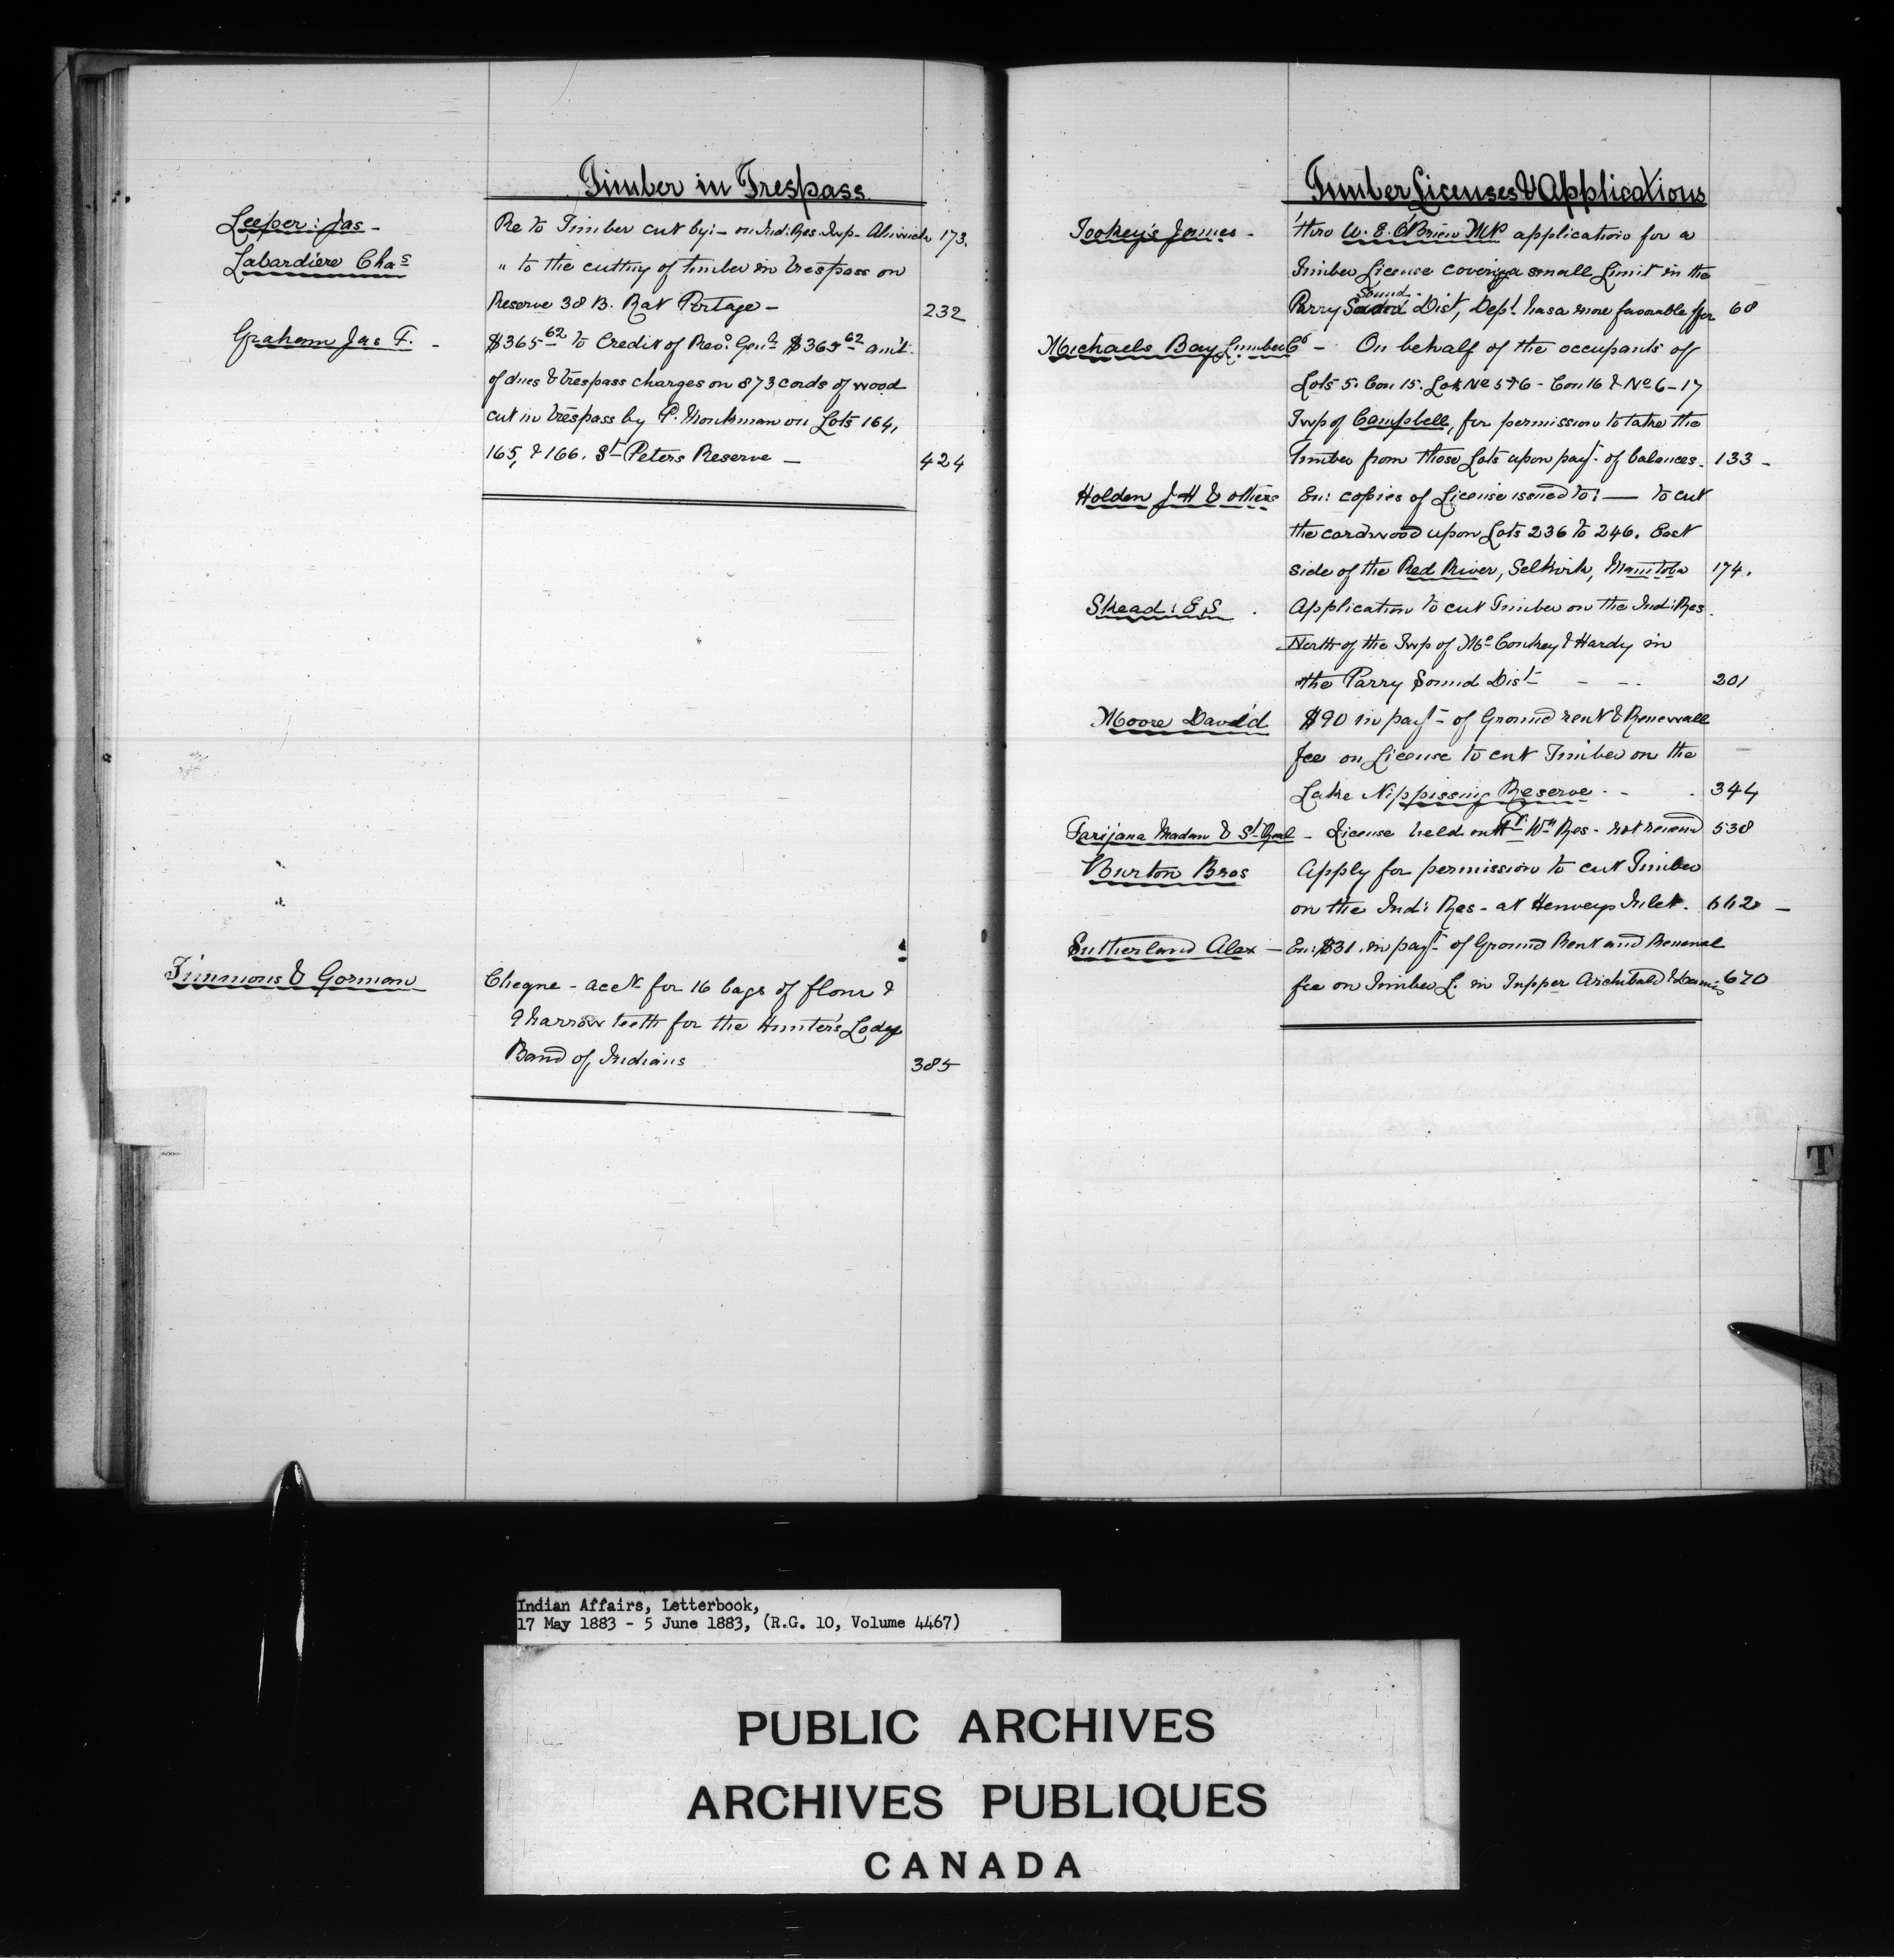 Timber in Trespass
Leeper: Jas - Re to Timber cut by:- on Ind: Res. Twp. Alnwick 173.
Labardiere Chas " to the cutting of timber in trespass on
Reserve 38 B. Rat Portage - 232
Graham Jas F. - $365.62 to Credit of Rec. Genl $365.62 amt.
of dues & trespass charges on 873 cords of wood
cut in trespass by P. on Lots 164,
165, & 166. St Peters Reserve - 424
Timmons & Gorman Cheque - acct for 16 bags of flour &
9 harrow teeth for the Hunter's Lodge
Band of Indians 385
Timber Licenses & Applications
Tookey's James - 'thro W. E. O'Brien MP application for a
Timber License covering a small Limit in the
Parry Sound Dist, Dept. has a more favorable offer 68
Michaels Bay Lumber Co - On behalf of the occupants of
Lots 5. Con 15. Lot No 5 & 6 - Con 16 & No 6 - 17
Twp of Campbell, for permission to take the
Timber from those Lots upon payt. of balances. 133 -
Holden J H & others En: copies of License issued to: — to cut
the cordwood upon Lots 236 to 246. East
side of the Red River, Selkirk, Manitoba 174.
Skead: E S . Application to cut Timber on the Ind: Res.
North of the Twp of Mc Conkey & Hardy in
the Parry Sound Dist - - 201
Moore David $90 in payt of Ground rent & Renewall
fee on License to cut Timber on the
Lake Nippissing Reserve. - . 344
Madam & St - License held on Ft. Wm Res - not renewd 538
Burton Bros Apply for permission to cut Timber
on the Ind: Res - at Henveys Inlet. 662 -
Sutherland Alex - En: $31. in payt of Ground Rent and Renewal
fee on Timber L. in Tupper Archibald & Dennis 670
T
Indian Affairs, Letterbook,
17 May 1883 - 5 June 1883, (R.G. 10, Volume 4467)
PUBLIC ARCHIVES
ARCHIVES PUBLIQUES
CANADA